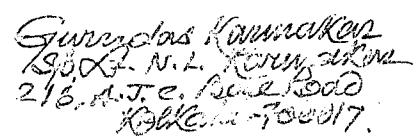 Gurudas Karmakar
S/o Lt. N.L. Karmakar
216, A.J.C. Bose Road
Kolkata-700017.